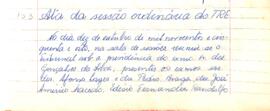 Ata da sessão ordinária do TRE.
Ao dia dez de outubro de mil novecentos e cin-
quenta e oito, na sala de sessões reuniu-se o
tribunal sob a presidência do exmo. sr. des.
Gonçalves da Silva, presentes os exmos. srs.
des. Afonso Lages e des. Pedro Braga, drs. José
Américo Macedo, David Fernandes Randolfo